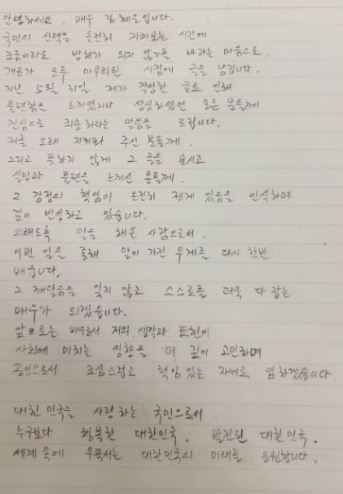 안녕하세요, 배우 김혜은입니다.
국민의 선택을 온전히 지켜보는 시간에
조금이라도 방해가 되지 않기를 바라는 마음으로,
개표가 모두 마무리된 시점에 글을 남깁니다.
지난 5월 30일 제가 작성한 글로 인해
불편함을 느끼셨거나 상심하셨던 모든 분들께
진심으로 죄송하다는 말씀을 드립니다.
저를 오래 지켜봐 주신 분들께,
그리고 뜻하지 않게 그 글을 보시고
실망과 불편을 느끼신 분들께,
그 감정의 책임이 온전히 제게 있음을 인식하며
깊이 반성하고 있습니다.
오래도록 말을 해온 사람으로서,
이런 일을 통해 말이 가진 무게를 다시 한번
배웁니다.
그 깨달음을 잊지 않고 스스로를 더욱 다잡는
배우가 되겠습니다.
앞으로는 배우로서 저의 생각과 표현이
사회에 미치는 영향을 더 깊이 고민하며
공인으로서 조심스럽고 책임 있는 자세로 임하겠습니다.
대한민국을 사랑하는 국민으로서
누구보다 행복한 대한민국, 발전된 대한민국,
세계 속에 우뚝서는 대한민국의 미래를 응원합니다.